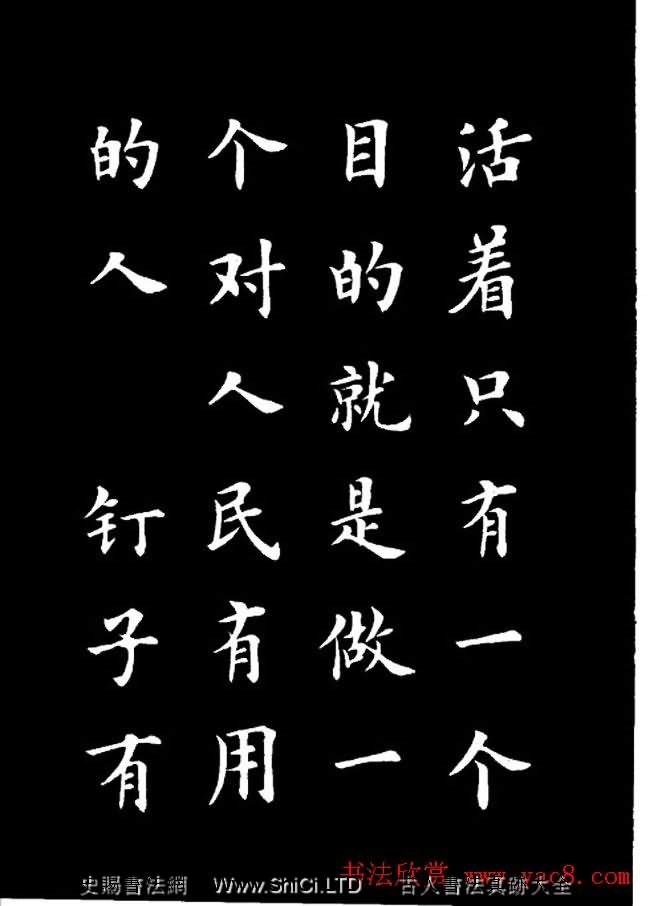 活着只有一个
目的就是做一
个对人民有用
的人 钉子有
书法欣赏 www.yac8.com
史賜書法網 Www.ShiCi.LTD 古人書法真跡大全